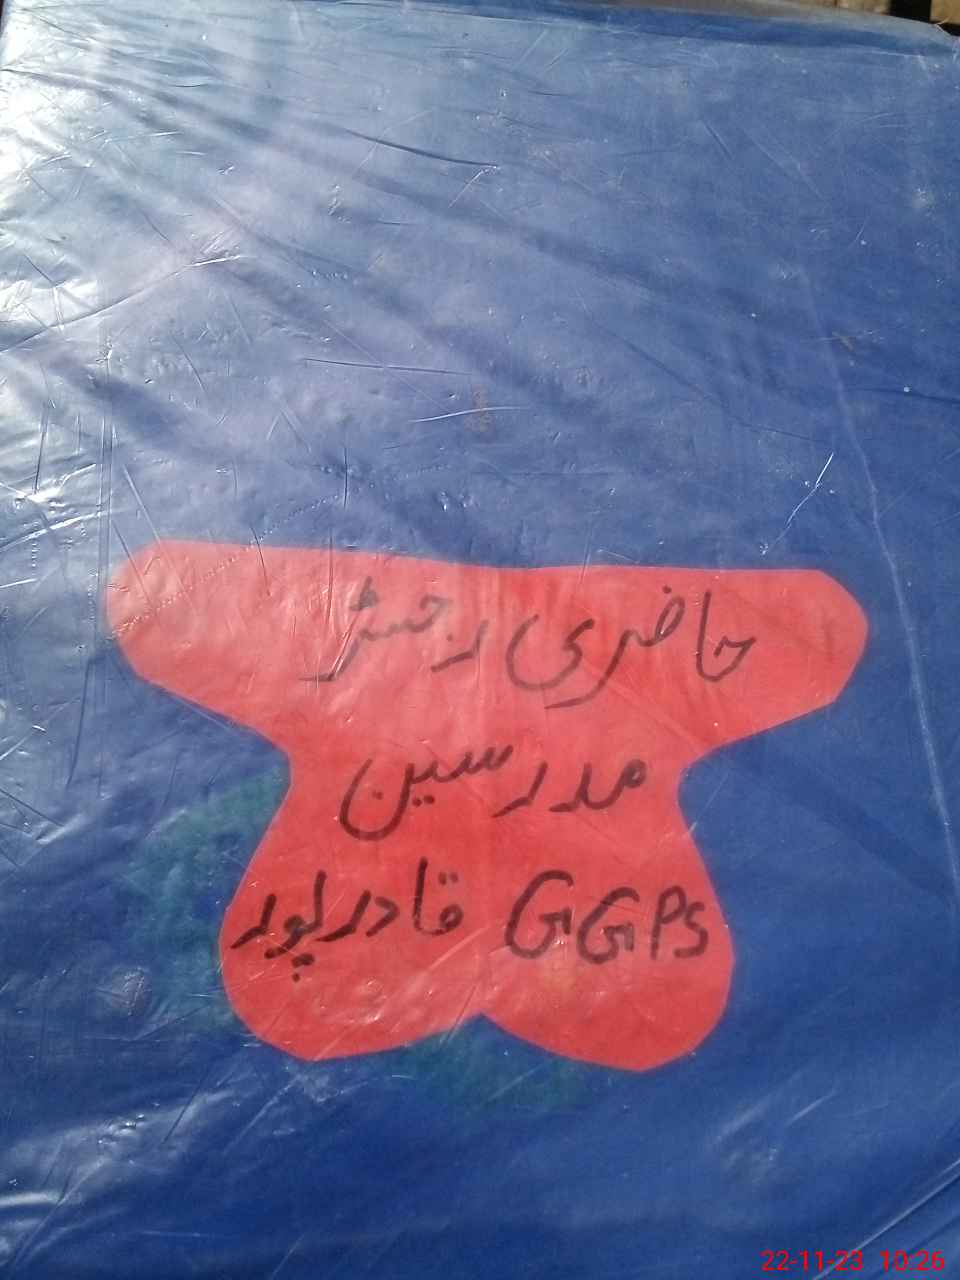 حاضری رجسٹر
مدرسین
GGPS قادرپور
22-11-23 10:26